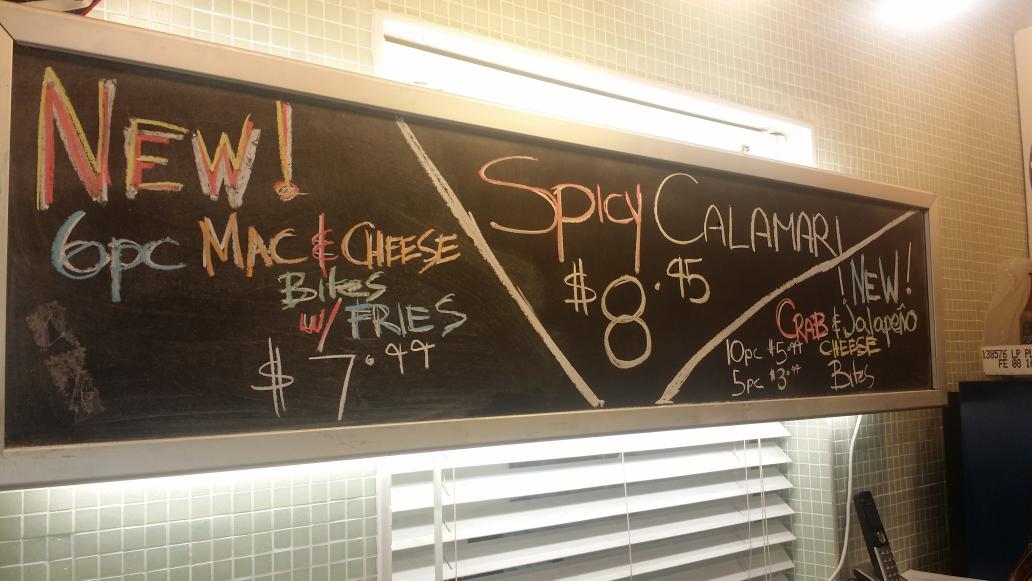 NEW!
6pc MAC & CHEESE
Bites
w/ FRIES
$7.99
SPICY CALAMARI
$8.95
NEW!
CRAB & Jalapeño
CHEESE
Bites
10pc $5.99
5pc $3.99
138576 LP PL
FE 08 16